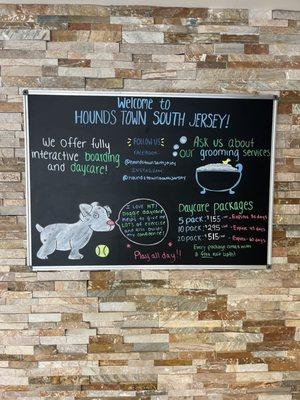 Welcome to
HOUNDS TOWN SOUTH JERSEY!
We offer fully
interactive boarding
and daycare!
FOLLOW US
FACEBOOK
@houndstownsouthjersey
INSTAGRAM
@houndstownsouthjersey
Ask us about
our grooming services
I LOVE HT!
Doggie daycare
helps to give me
LOTS of exercise
and also builds
my confidence!
Play all day!!
Daycare Packages
5 pack: $155 - Expires 30 days
10 pack: $295 - Expires 45 days
20 pack: $515 - Expires 60 days
Every package comes with
a free